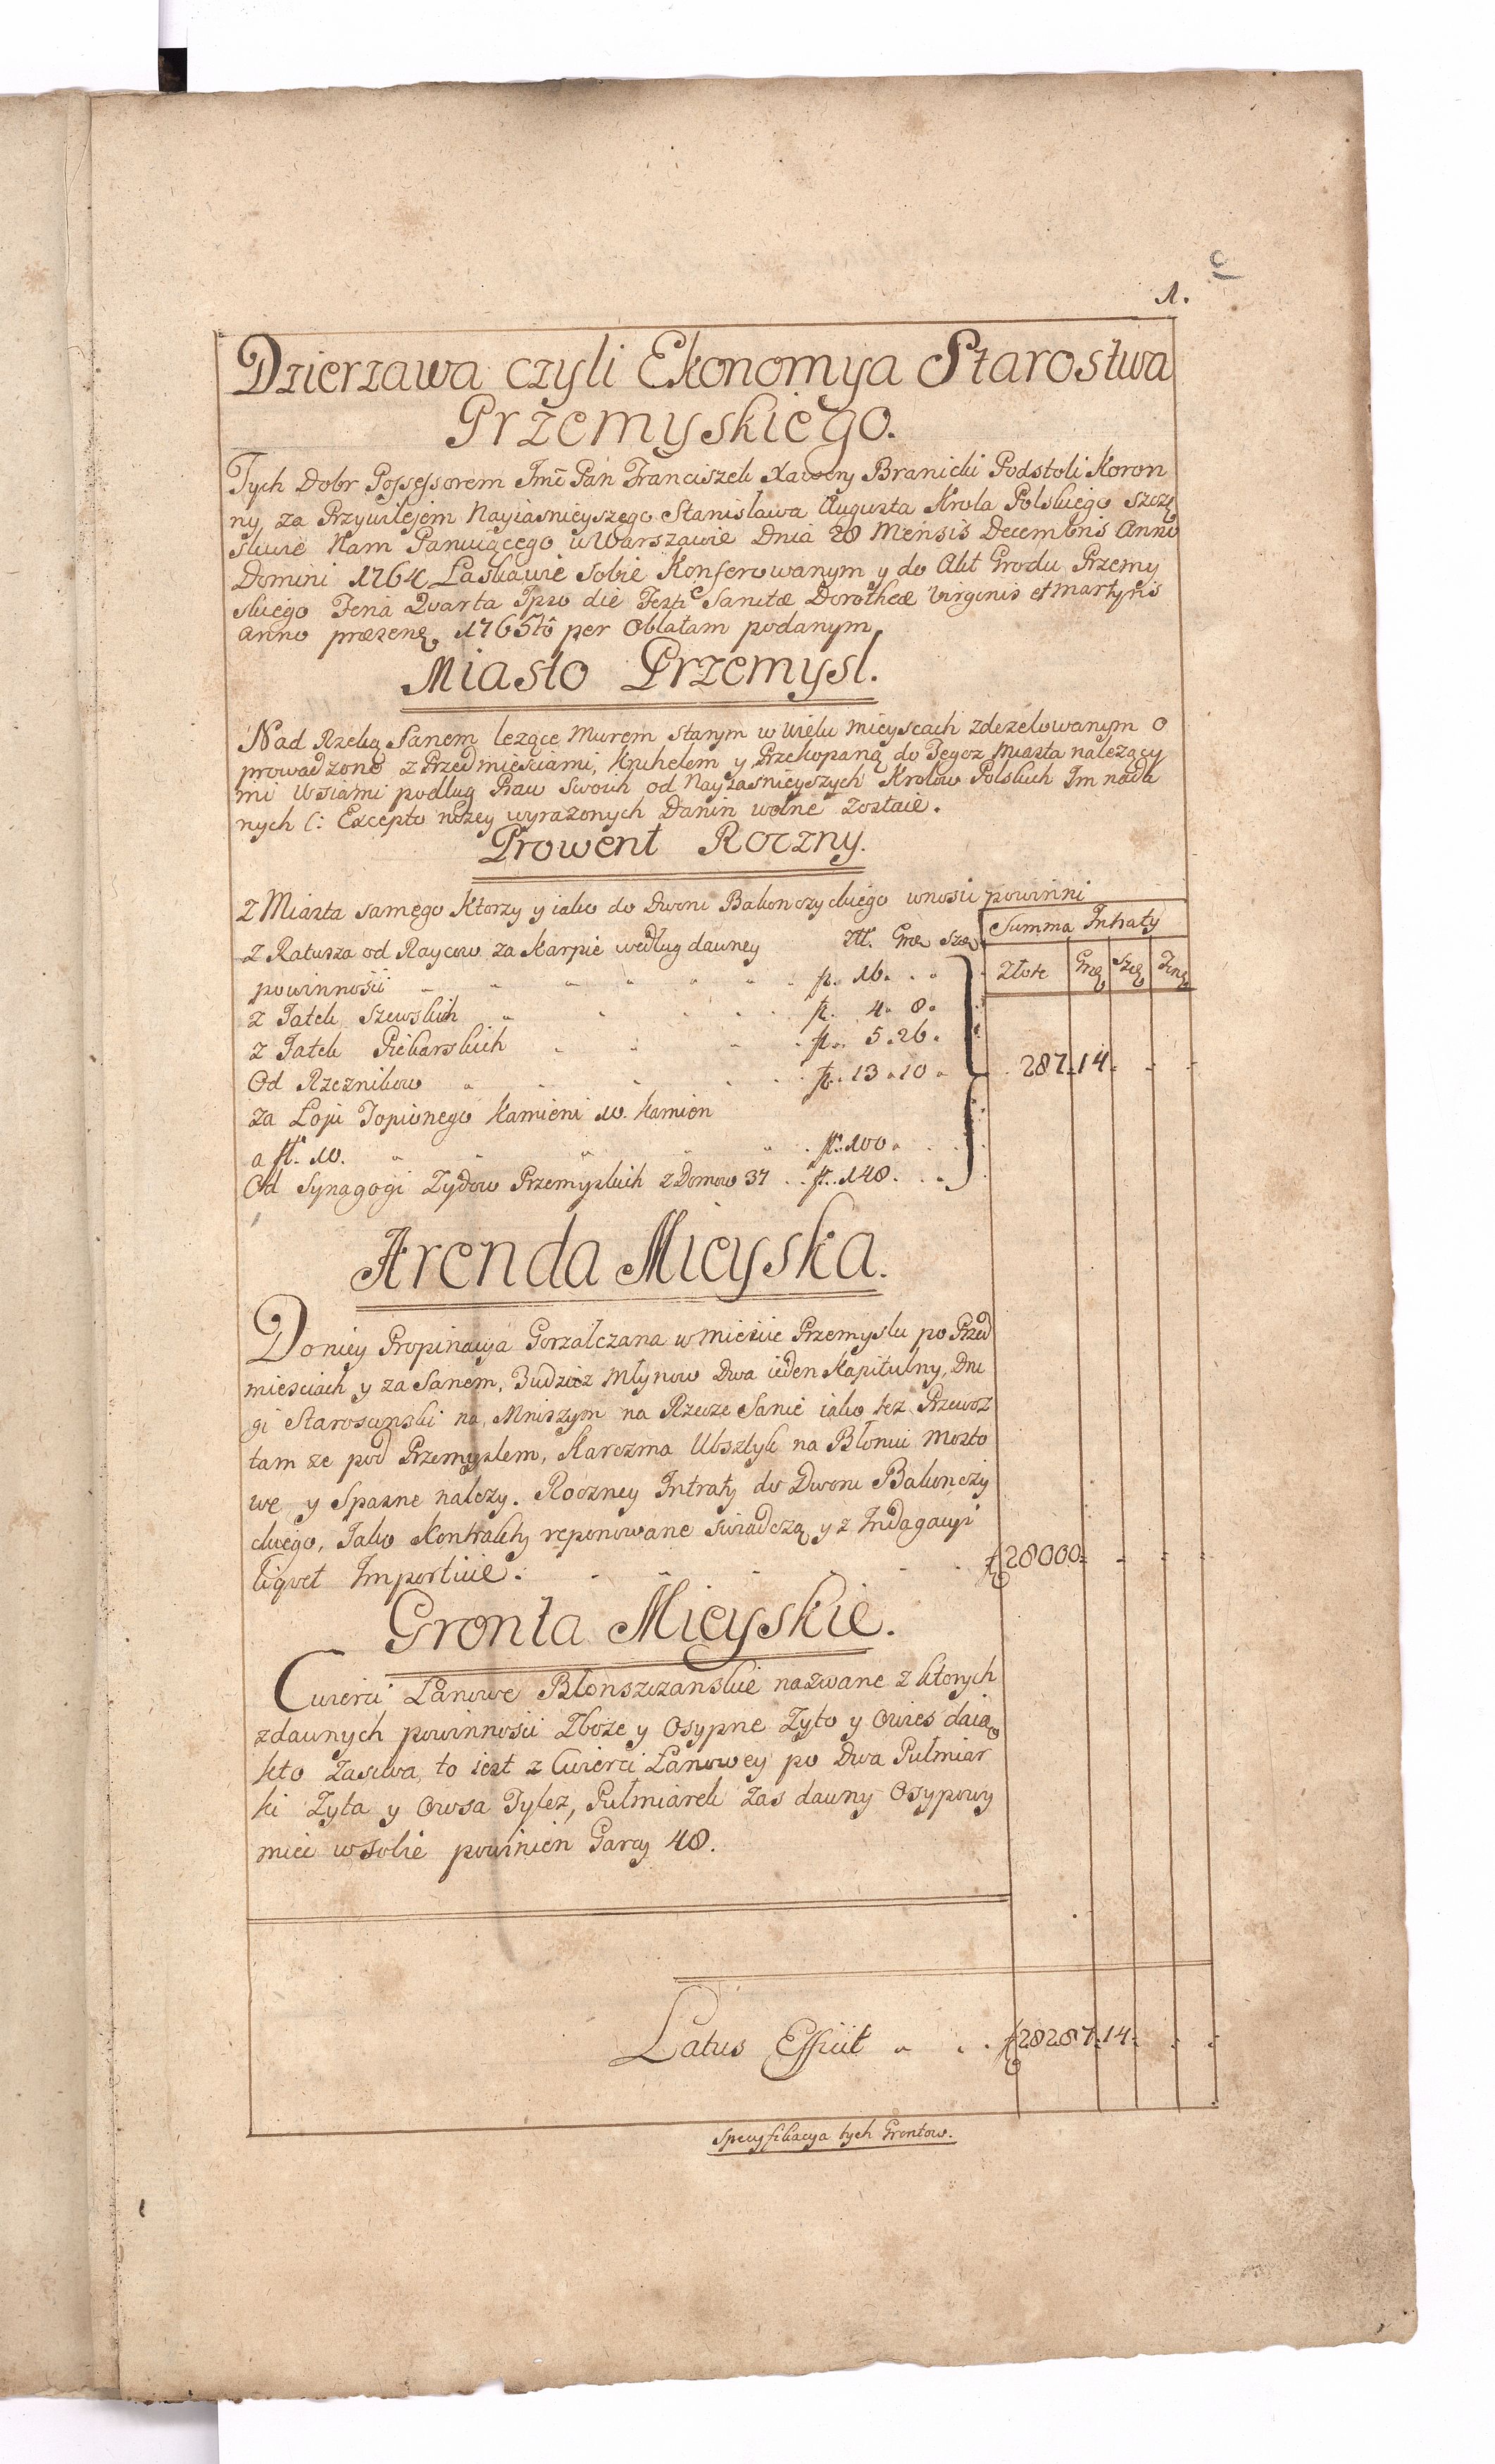 1.
Dzierzawa czyli Ekonomya Starostwa
Przemyskiego.
Tych Dobr Possessorem Jmć Pan Franciszek Xawery Branicki Podstoli Koron
ny, za Przywilejem Nayiasnieyszego Stanisława Augusta Krola Polskiego szczę
sliwie Nam Panuiącego w Warszawie Dnia 28 Mensis Decembris Anno
Domini 1764 Łaskawie sobie Konferowanym y do Akt Grodu Przemy
skiego Feria Quarta Ipso die Festi Sanctæ Dorotheæ Virginis et Martyris
anno præsenę 1765tô per Oblatam podanym.
Miasto Przemysl.
Nad Rzeką Sanem lezące Murem starym w wielu mieyscach zdezelowanym o
prowadzone z Przedmiesciami, Kruhelem y Przekopaną do Tegoz Miasta nalezący
mi Wsiami podług Praw swoich od Nayiasnieyszych Krolow Polskich Im nada
nych (: Excepto nizey wyrazonych Danin wolne zostaie.
Prowent Roczny.
Z Miasta samego Ktorzy y iako do Dworu Bakonczyckiego wnosic powinni
Summa Intraty
Złote Grę Szę Fenę
Z Ratusza od Raycow za Karpie według dawney Złł. Grę Szę
powinnosci fł. 16.
z Jatek Szewskich fł. 4. 8.
z Jatek Piekarskich fł. 5. 26.
Od Rzeznikow fł. 13. 10
287. 14.
za Łoju Topionego Kamieni 10. Kamien
a fł. 10. fł. 100.
Od Synagogi Zydow Przemyskich z Domow 37 fł. 148.
Arenda Mieyska.
Do niey Propinacya Gorzałczana w miescie Przemyslu po Przed
miesciach y za Sanem, Tudziez Młynow Dwa ieden Kapitulny, Dru
gi Staroscinski na Mniszym na Rzece Sanie iako tez Przewoz
tam ze pod Przemyslem, Karczma Ubsztyk na Błoniu Mosto
we y Spasne nalezy. Roczney Intraty do Dworu Bakonczy
ckiego, Jako Kontrakty reponowane swiadczą y z Indagacyi
liquet Importuie. 28000
Gronta Mieyskie.
Cwierci Łanowe Błonszczanskie nazwane z ktorych
zdawnych powinnosci Zboze y Osypne Zyto y Owies daią
kto zasiwa, to iest z Cwierci Łanowey po Dwa Pułmiar
ki Zyta y Owsa Tylez, Pułmiarek zas dawny Osypowy
miec w sobie powinien Garcy 48.
Latus Efficit 28287. 14.
Specyfikacya tych Grontow.